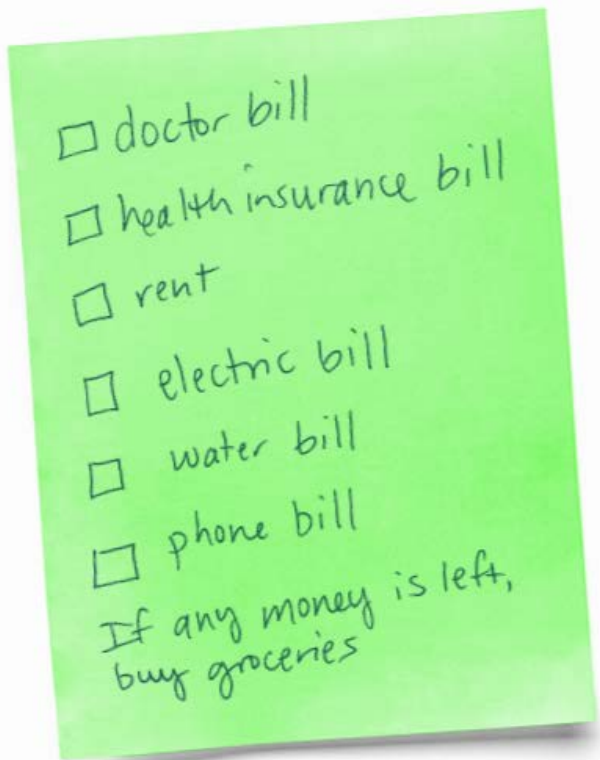 doctor bill
health insurance bill
rent
electric bill
water bill
phone bill
If any money is left,
buy groceries